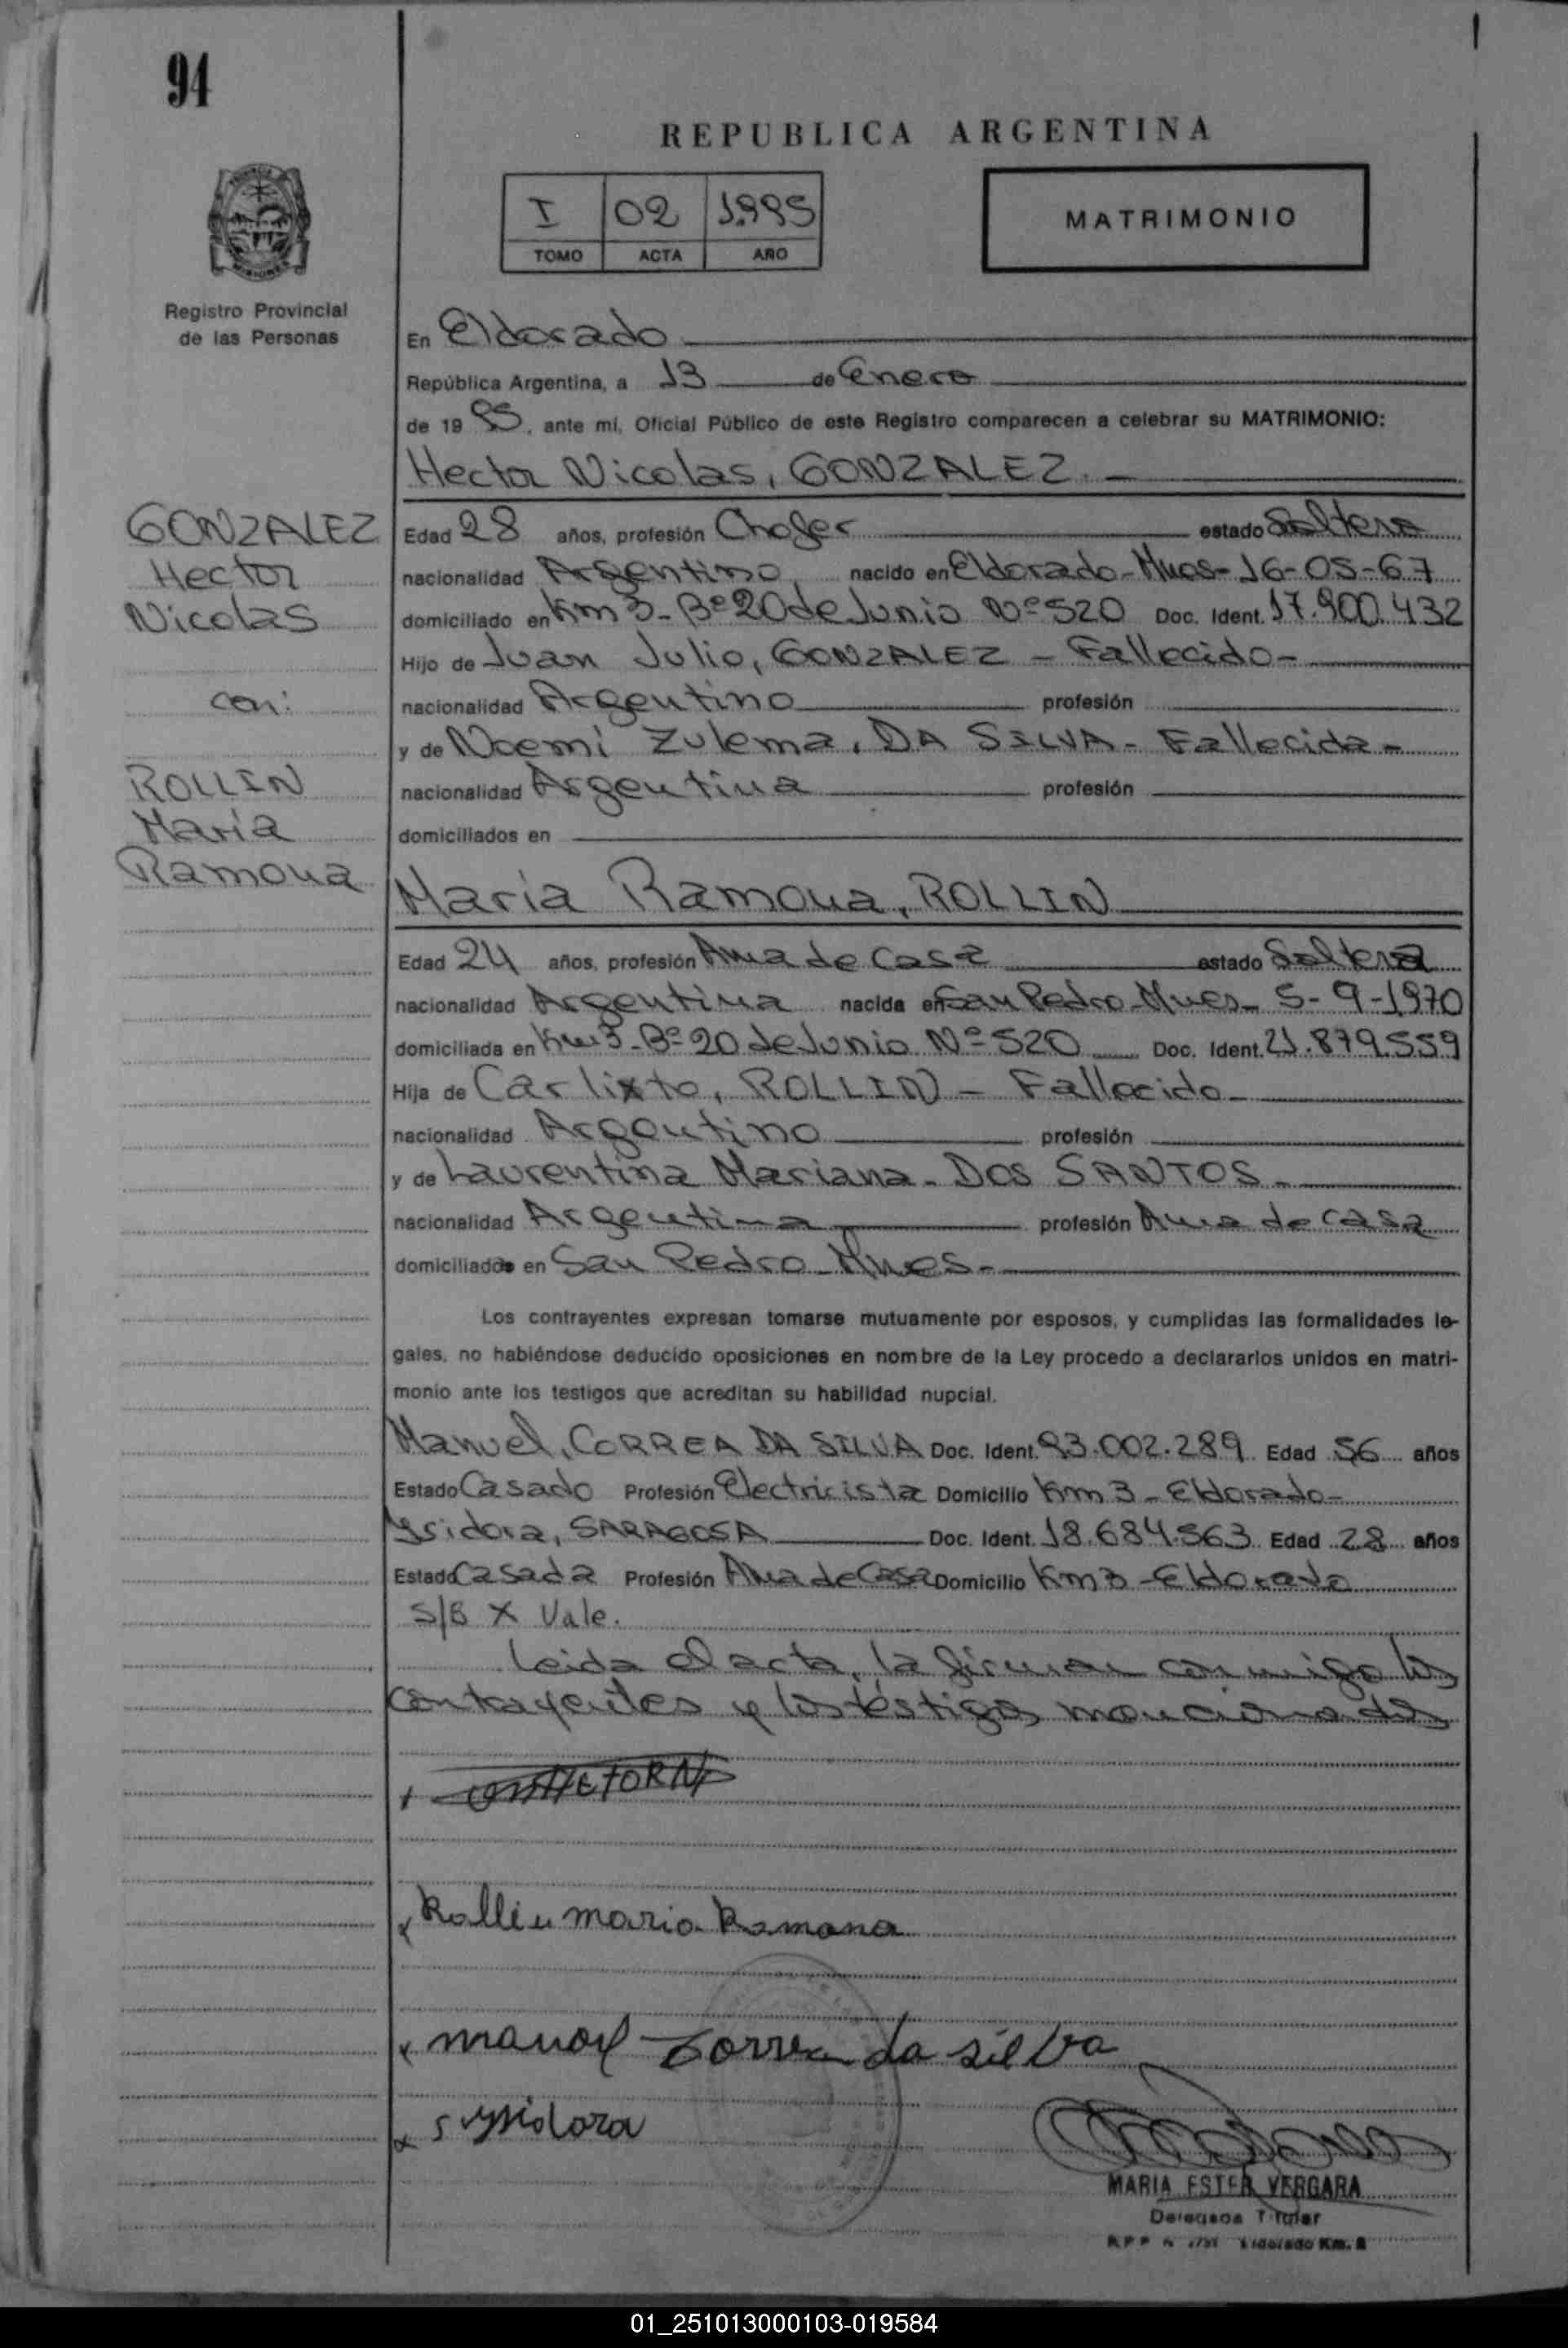 94
REPUBLICA ARGENTINA
I 02 1995
TOMO ACTA AÑO
MATRIMONIO
Registro Provincial
de las Personas
En Eldorado
República Argentina, a 13 de Enero
de 1995, ante mi, Oficial Público de este Registro comparecen a celebrar su MATRIMONIO:
Hector Nicolas, GONZALEZ.
GONZALEZ
Hector
Nicolas
con:
ROLLIN
Maria
Ramona
Edad 28 años, profesión Chofer estado Soltero
nacionalidad Argentino nacido en Eldorado-Mnes-16-05-67
domiciliado en Km 3-Bº20 de Junio Nº520 Doc. Ident. 17.900.432
Hijo de Juan Julio, GONZALEZ - Fallecido-
nacionalidad Argentino profesión
y de Noemi Zulema, DA SILVA- Fallecida-
nacionalidad Argentina profesión
domiciliados en
Maria Ramona, ROLLIN
Edad 24 años, profesión Ama de Casa estado Soltera
nacionalidad Argentina nacida en San Pedro-Mnes- 5-9-1970
domiciliada en Km3-Bº 20 de Junio Nº 520 Doc. Ident. 21.879.559
Hija de Carlixto, ROLLIN - Fallecido-
nacionalidad Argentino profesión
y de Laurentina Mariana- DOS SANTOS-
nacionalidad Argentina profesión Ama de casa
domiciliados en San Pedro-Mnes-
Los contrayentes expresan tomarse mutuamente por esposos, y cumplidas las formalidades le-
gales, no habiéndose deducido oposiciones en nombre de la Ley procedo a declararlos unidos en matri-
monio ante los testigos que acreditan su habilidad nupcial.
Manuel, CORREA DA SILVA Doc. Ident. 93.002.289 Edad 56 años
Estado Casado Profesión Electricista Domicilio Km 3-Eldorado-
Ysidora, SARAGOSA Doc. Ident. 18.684.563 Edad 28 años
Estado Casada Profesión Ama de Casa Domicilio Km3-Eldorado
S/B X Vale.
Leida el acta, la firman conmigo los
contrayentes y los testigos mencionados
Rollin maria Ramona
manoel Correa da silva
s ysidora
MARIA ESTER VERGARA
Delegada Titular
Eldorado Km.
01_251013000103-019584